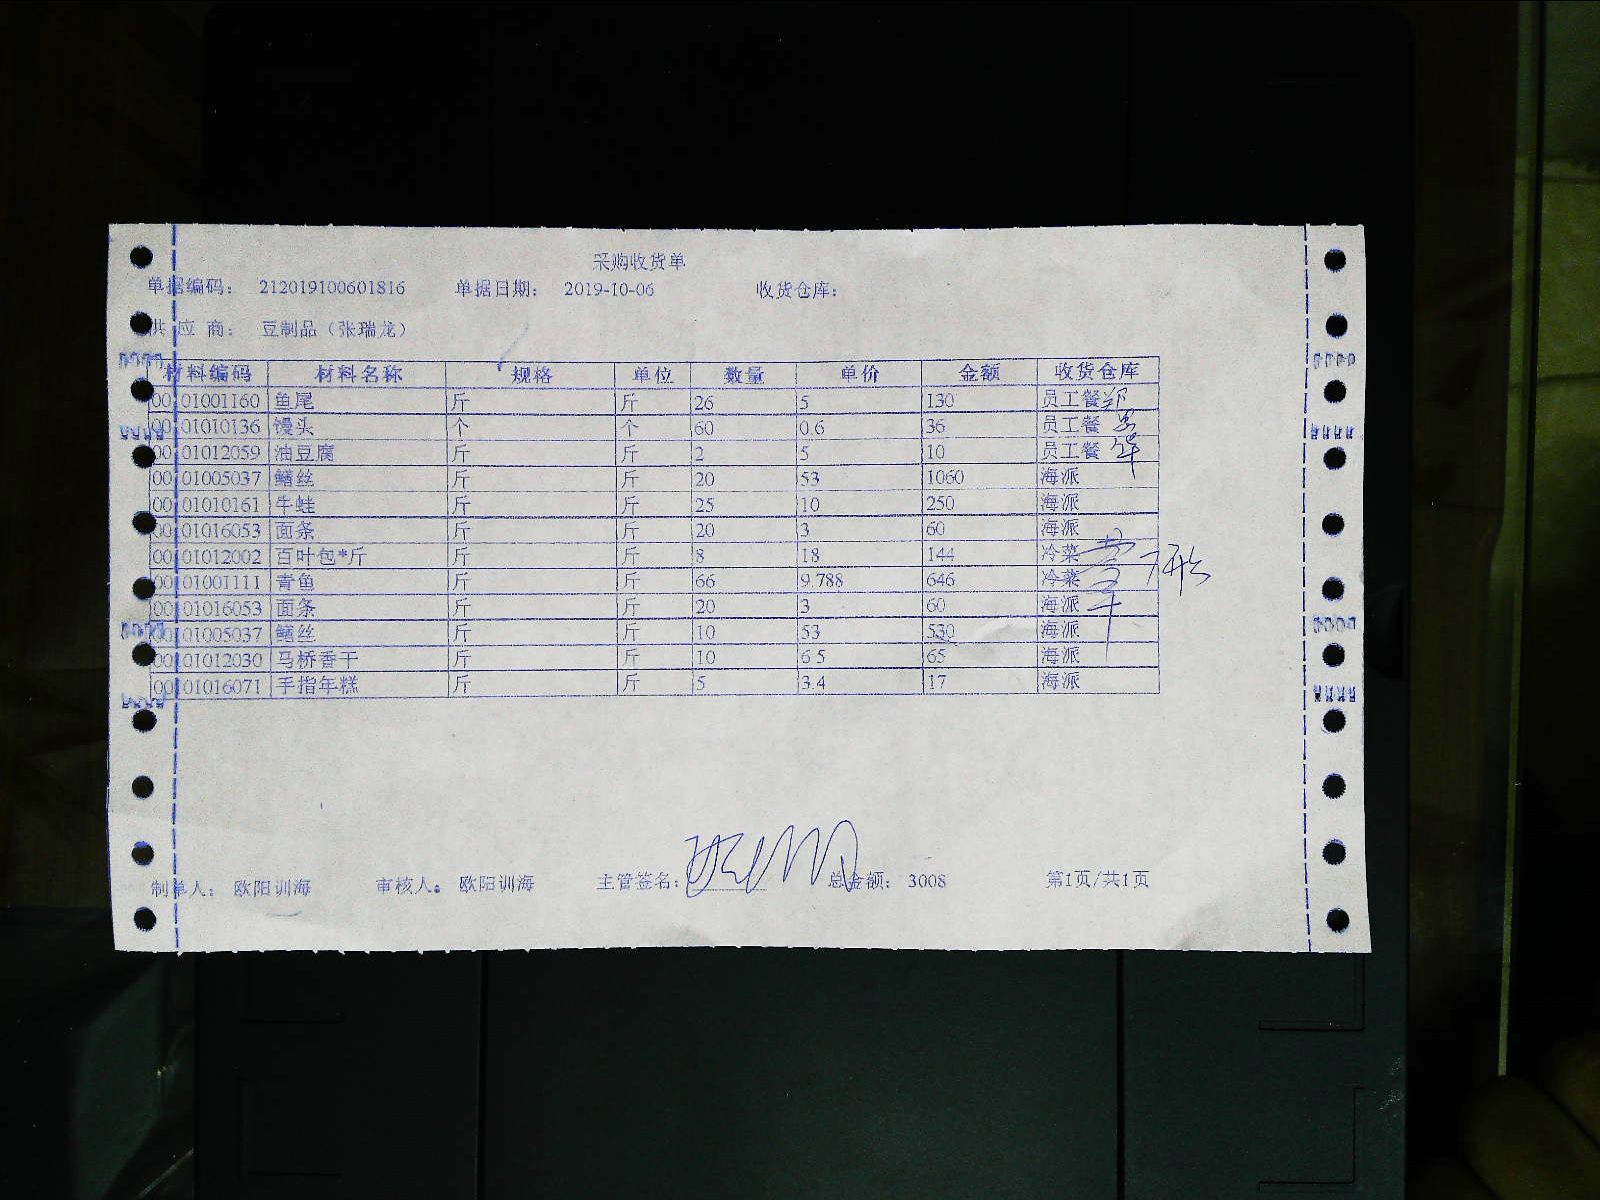 采购收货单
单据编码： 212019100601816 单据日期： 2019-10-06 收货仓库：
供 应 商： 豆制品（张瑞龙）
材料编码 材料名称 规格 单位 数量 单价 金额 收货仓库
00101001160 鱼尾 斤 斤 26 5 130 员工餐
00101010136 馒头 个 个 60 0.6 36 员工餐
00101012059 油豆腐 斤 斤 2 5 10 员工餐
00101005037 鳝丝 斤 斤 20 53 1060 海派
00101010161 牛蛙 斤 斤 25 10 250 海派
00101016053 面条 斤 斤 20 3 60 海派
00101012002 百叶包*斤 斤 斤 8 18 144 冷菜
00101001111 青鱼 斤 斤 66 9.788 646 冷菜
00101016053 面条 斤 斤 20 3 60 海派
00101005037 鳝丝 斤 斤 10 53 530 海派
00101012030 马桥香干 斤 斤 10 6.5 65 海派
00101016071 手指年糕 斤 斤 5 3.4 17 海派
制单人： 欧阳训海 审核人： 欧阳训海 主管签名： 总金额： 3008 第1页/共1页